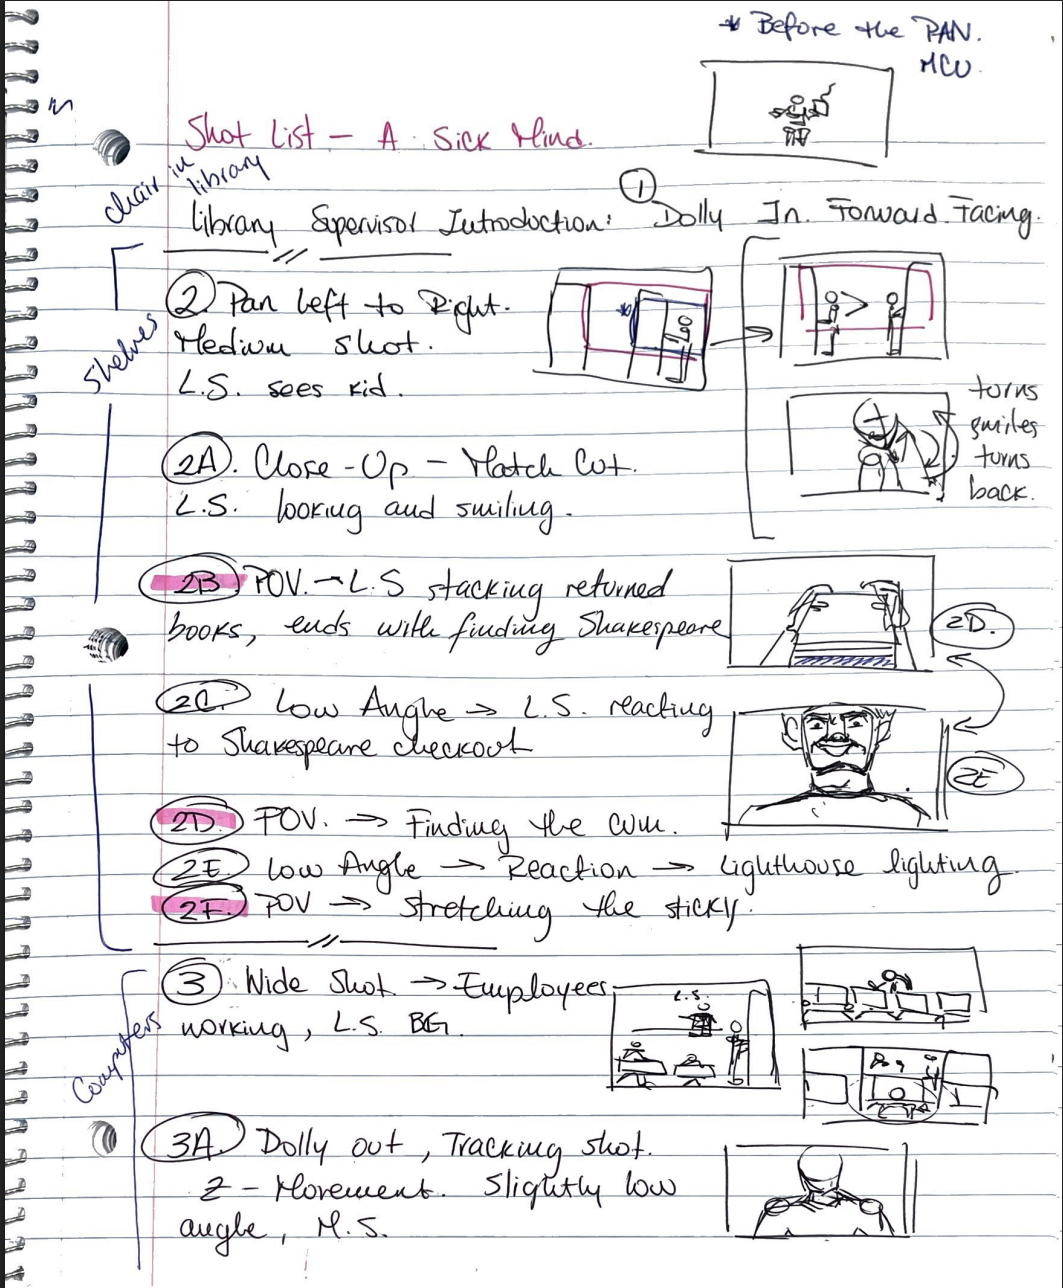 * Before the PAN.
MCU.
Shot List - A Sick Mind.
chair in
library
Library Supervisor Introduction: ① Dolly In. Forward Facing.
Shelves
② Pan Left to Right.
Medium Shot.
L.S. sees kid.
turns
smiles
turns
back.
2A. Close-Up - Match Cut.
L.S. looking and smiling.
2B POV. → L.S stacking returned
books, ends with finding Shakespeare
2D.
2C. Low Angle → L.S. reacting
to Shakespeare checkout
2E
2D. POV. → Finding the cum.
2E. Low Angle → Reaction → Lighthouse lighting.
2F. POV → Stretching the sticky.
Computers
③ Wide Shot → Employees
working, L.S. BG.
L.S.
3A. Dolly out, Tracking shot.
Z - Movement. Slightly low
angle, M.S.